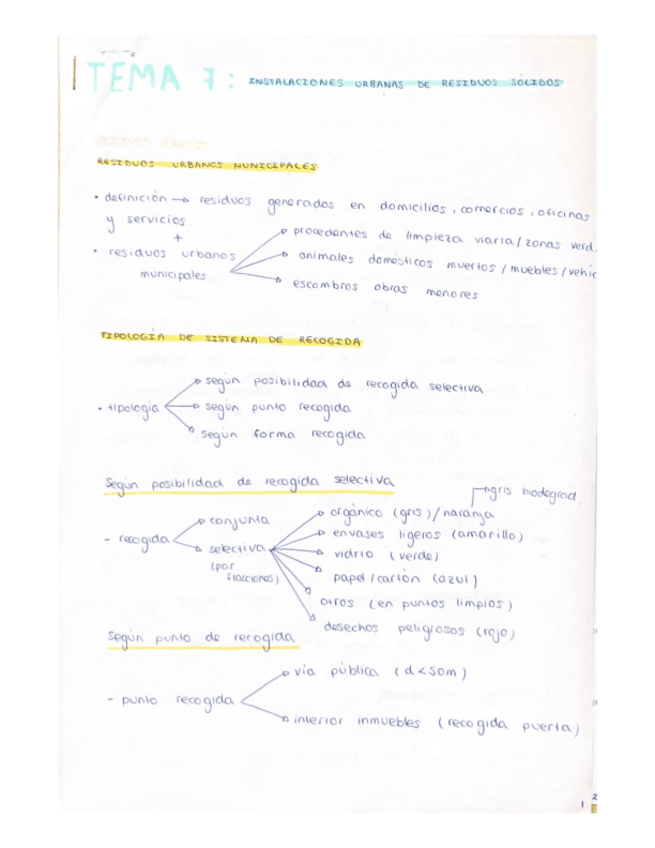 TEMA 7: INSTALACIONES URBANAS DE RESIDUOS SÓLIDOS
RESIDUOS URBANOS MUNICIPALES
• definición → residuos generados en domicilios, comercios, oficinas
y servicios
+
• residuos urbanos municipales
procedentes de limpieza viaria/zonas verd.
animales domésticos muertos/muebles/vehic
escombros obras menores
TIPOLOGÍA DE SISTEMA DE RECOGIDA
• tipología
según posibilidad de recogida selectiva
según punto recogida
según forma recogida
Según posibilidad de recogida selectiva
gris biodegrad.
- recogida
conjunta
selectiva
(por
fracciones)
orgánico (gris)/naranja
envases ligeros (amarillo)
vidrio (verde)
papel/cartón (azul)
otros (en puntos limpios)
desechos peligrosos (rojo)
Según punto de recogida
- punto recogida
vía pública (d<50m)
interior inmuebles (recogida puerta)
1
2